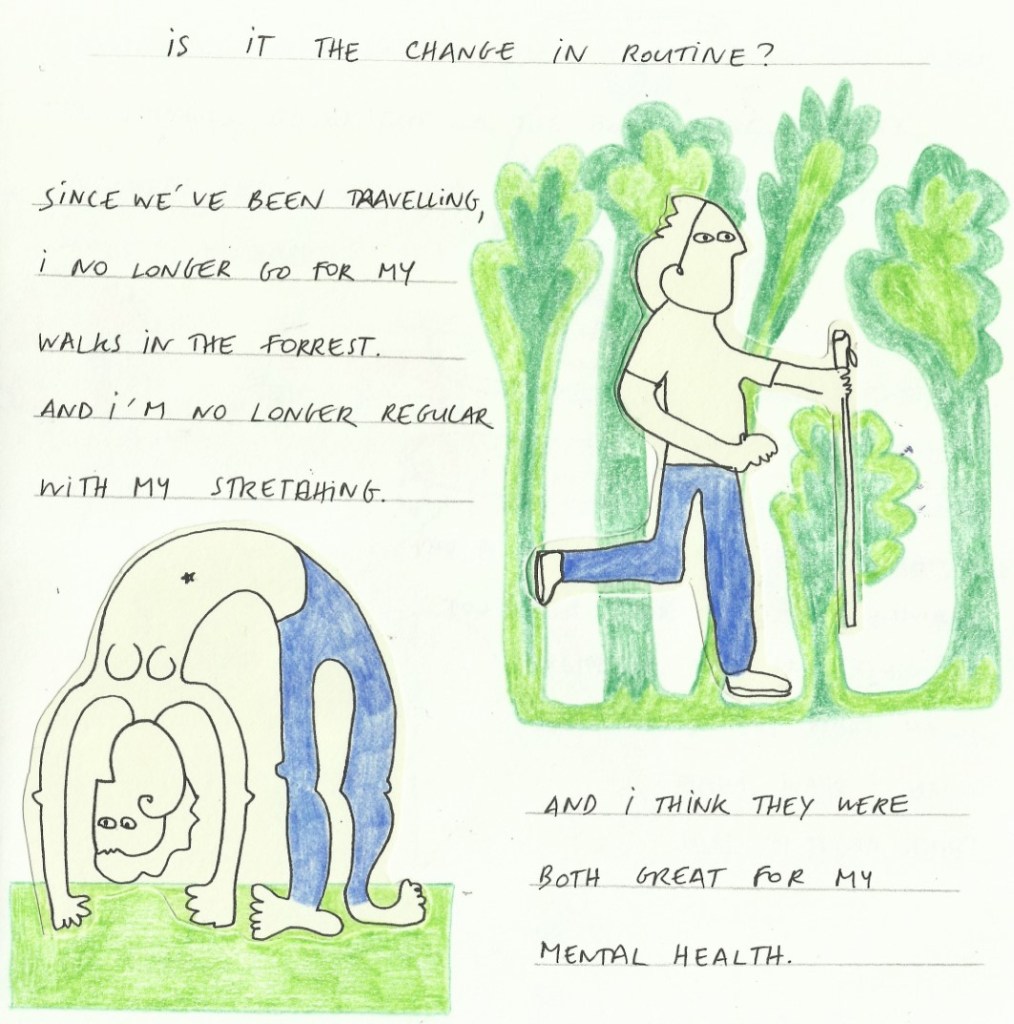 iS iT THE CHANGE iN ROUTINE?
SiNCE WE'VE BEEN TRAVELLiNG,
i NO LONGER GO FOR MY
WALKS iN THE FORREST.
AND i'M NO LONGER REGULAR
WiTH MY STRETCHiNG.
AND i THiNK THEY WERE
BOTH GREAT FOR MY
MENTAL HEALTH.